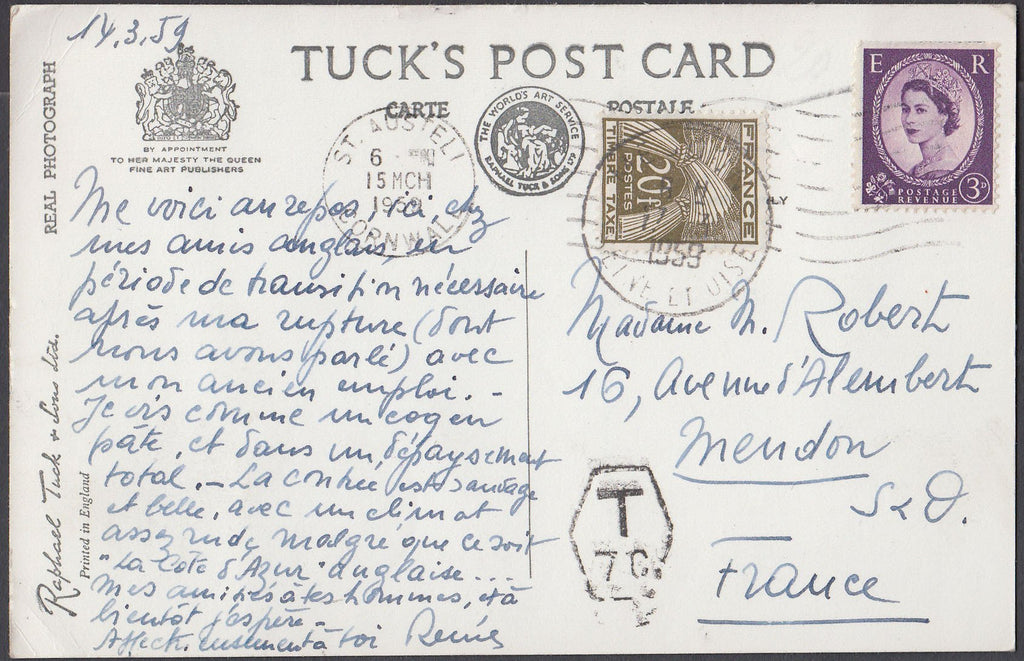 14.3.59
TUCK'S POST CARD
CARTE POSTALE
REAL PHOTOGRAPH
BY APPOINTMENT
TO HER MAJESTY THE QUEEN
FINE ART PUBLISHERS
THE WORLD'S ART SERVICE
RAPHAEL TUCK & SONS LTD
ST. AUSTELL
6 - PM
15 MCH
1959
CORNWALL
FRANCE
20F
POSTES
TIMBRE TAXE
1959
SEINE ET OISE
E R
POSTAGE
REVENUE
3D
Me voici au repos, ici chez
mes amis anglais, en
période de transition nécessaire
après ma rupture (dont
nous avons parlé) avec
mon ancien emploi. -
Je vis comme un coq en
pâte, et dans un dépaysement
total. - La contrée est sauvage
et belle, avec un climat
assez rude malgré que ce soit
"La Côte d'Azur" anglaise...
Mes amitiés à tes hommes, et à
bientôt j'espère -
Affectueusement à toi Renée
Madame M. Robert
16, Avenue d'Alembert
Meudon
S & O.
France
T
7 C.
Raphael Tuck & Sons Ltd.
Printed in England